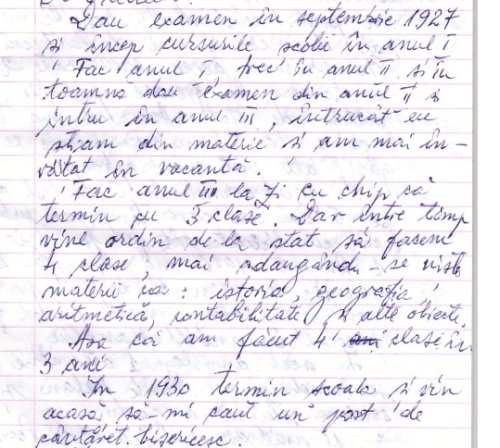 Dau examen în septembrie 1927
și încep cursurile școlii în anul I
Fac anul I, trec în anul II și în
toamnă dau examen din anul II și
intru în anul III, întrucât eu
știam din materie și am mai în-
vățat în vacanță.
Fac anul III la zi cu chip că
termin cu 3 clase. Dar între timp
vine ordin de la stat să facem
4 clase, mai adăugându-se niște
materii ca: istoria, geografia,
aritmetică, contabilitate și alte obiecte.
Așa că am făcut 4 clase în
3 ani
În 1930 termin școala și vin
acasă să-mi caut un post de
cântăreț bisericesc.